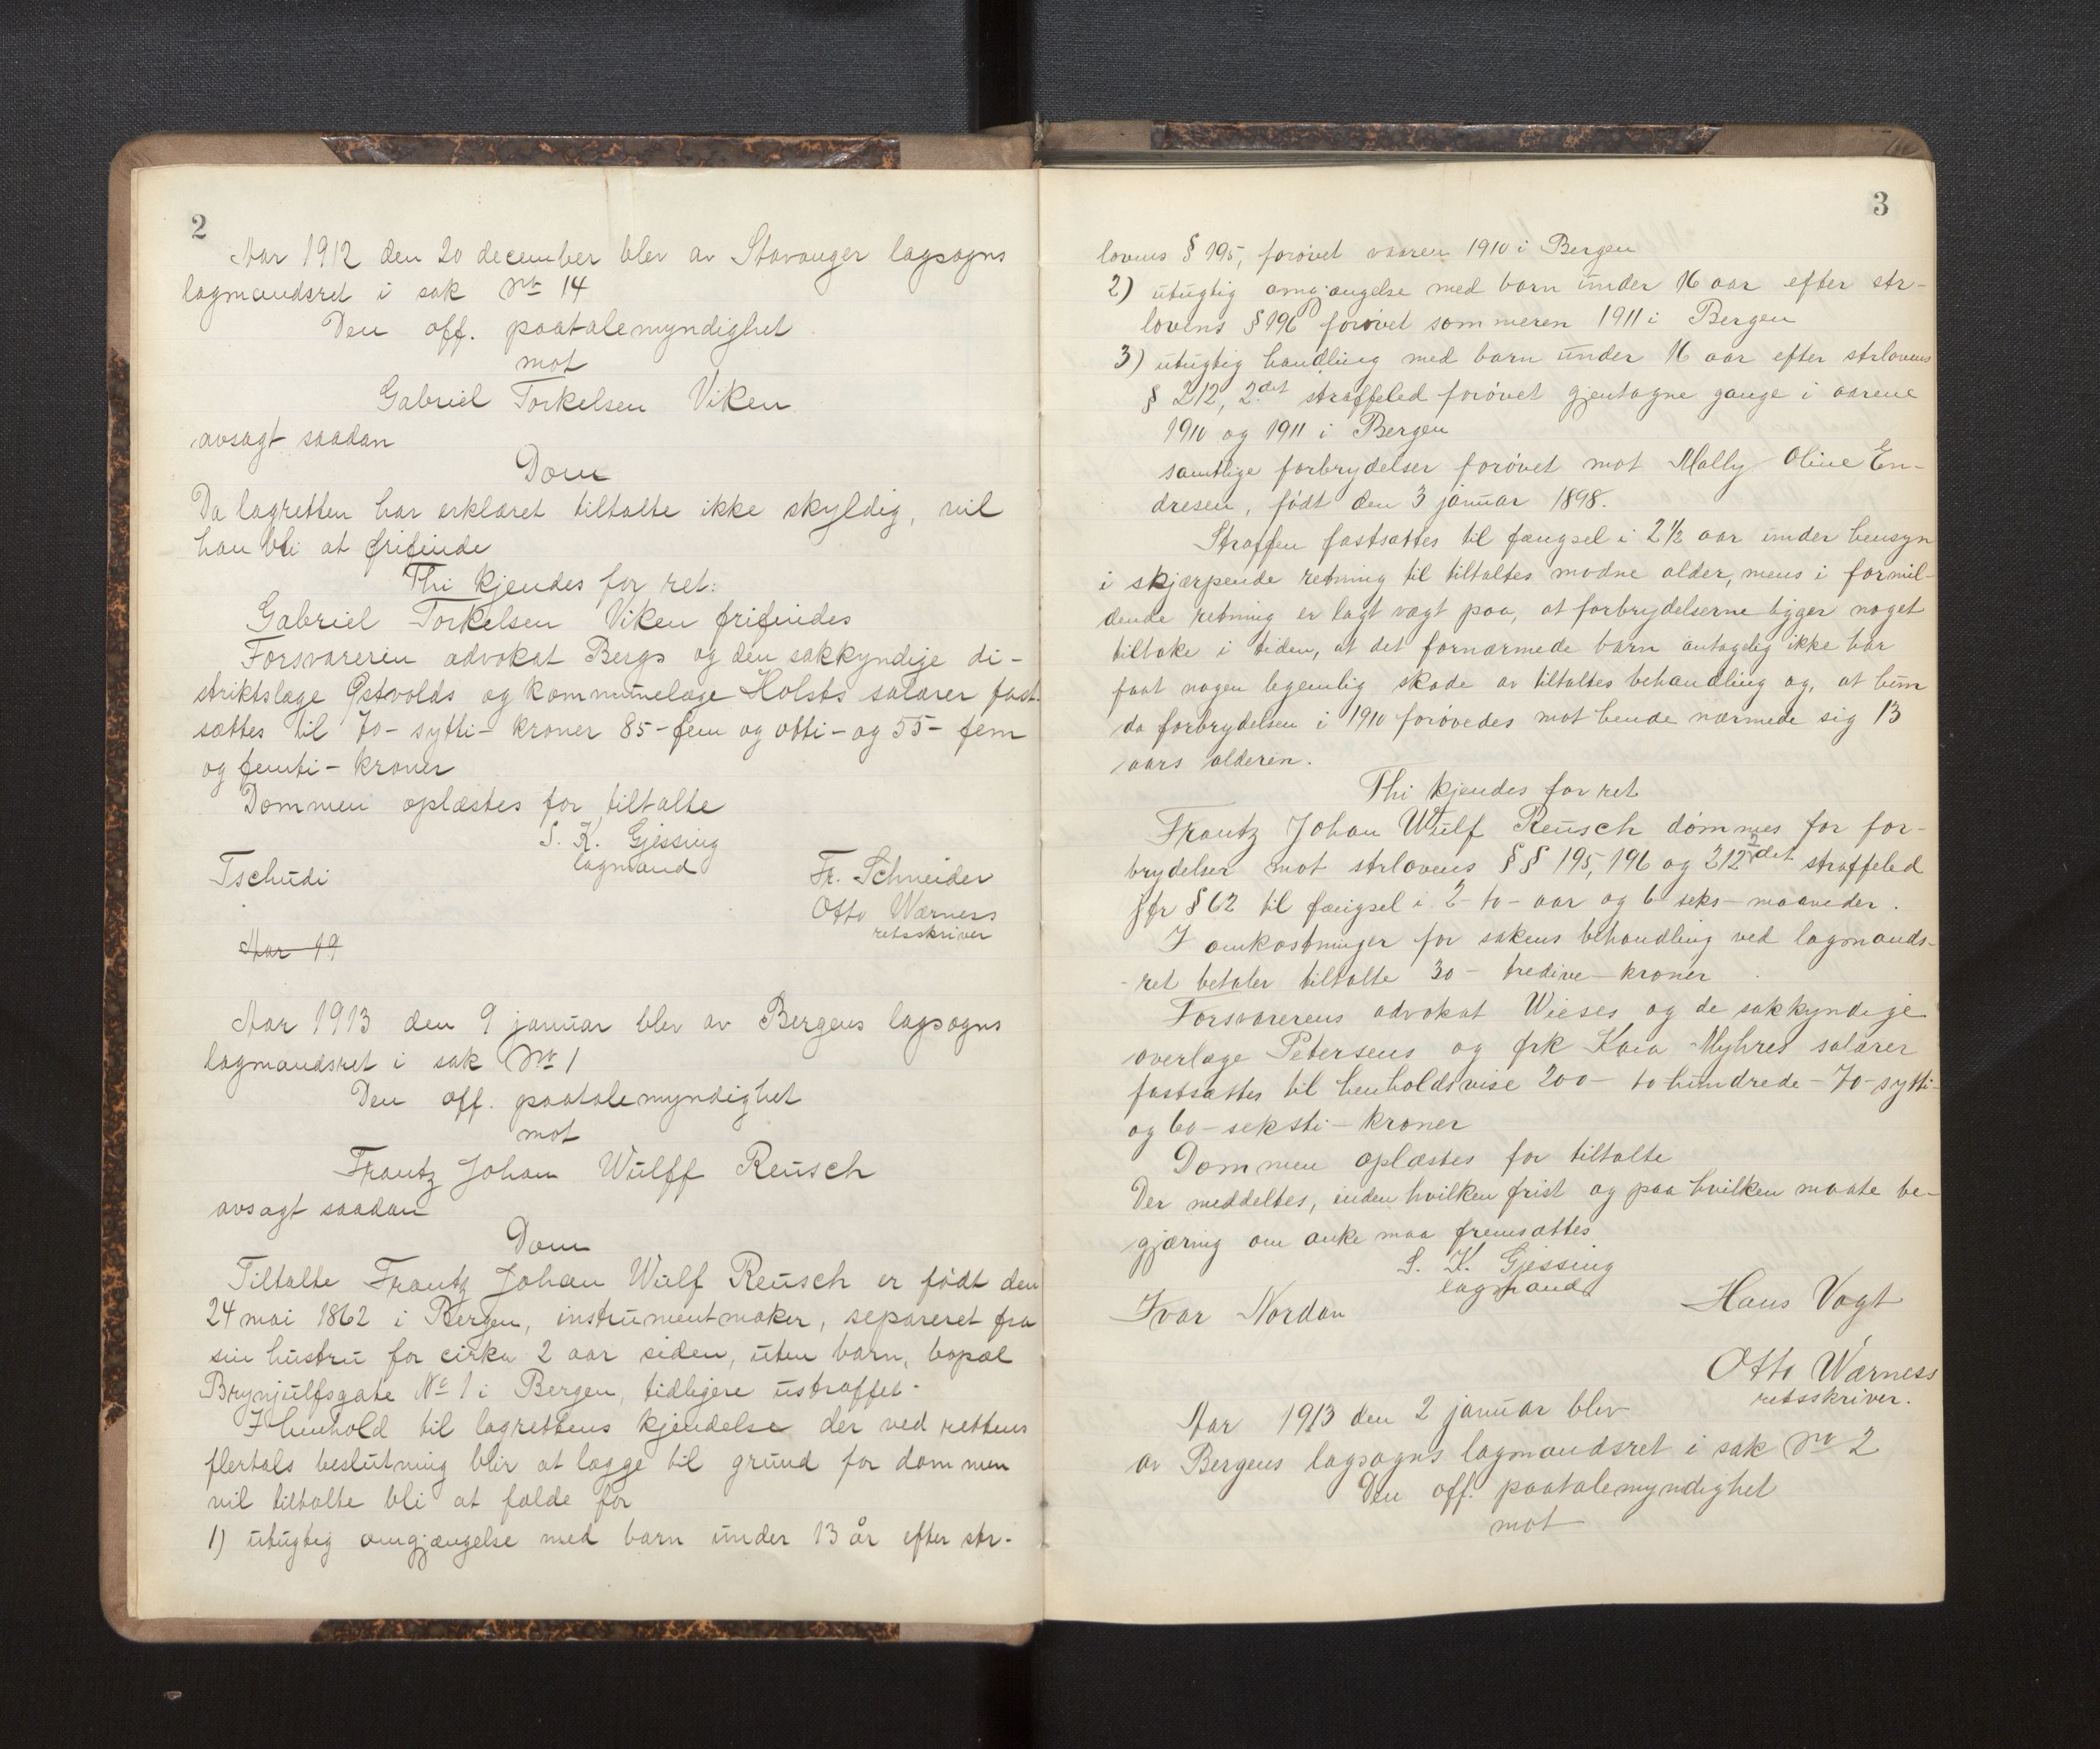 2
Aar 1912 den 20 december blev av Stavanger lagsogns
lagmandsret i sak No 14
Den off. paatalemyndighet
mot
Gabriel Torkelsen Viken
avsagt saadan
Dom
Da lagretten har erklæret tiltalte ikke skyldig, vil
han bli at frifinde
Thi kjendes for ret:
Gabriel Torkelsen Viken frifindes
Forsvareren advokat Bergs og den sakkyndige di-
striktslæge Østvolds og kommunelæge Holsts salærer fast-
sættes til 70 - sytti - kroner 85 - fem og otti - og 55 - fem
og femti - kroner
Dommen oplæstes for tiltalte
S. K. Gjessing
lagmand
Tschudi
Fr. Schneider
Otto Wærness
retsskriver
Aar 19
Aar 1913 den 9 januar blev av Bergens lagsogns
lagmandsret i sak No 1
Den off. paatalemyndighet
mot
Frantz Johan Wulff Reusch
avsagt saadan
Dom
Tiltalte Frantz Johan Wulf Reusch er født den
24 mai 1862 i Bergen, instrumentmaker, separeret fra
sin hustru for cirka 2 aar siden, uten barn, bopæl
Brynjulfsgate No 1 i Bergen, tidligere ustraffet.
I henhold til lagrettens kjendelse der ved rettens
flertals beslutning blir at lægge til grund for dommen
vil tiltalte bli at fælde for
1) utugtig omgjængelse med barn under 13 år efter str-
3
lovens § 195, forøvet vaaren 1910 i Bergen
2) utugtig omgjængelse med barn under 16 aar efter str-
lovens § 196 forøvet sommeren 1911 i Bergen
3) utugtig handling med barn under 16 aar efter strlovens
§ 212, 2det straffeled forøvet gjentagne gange i aarene
1910 og 1911 i Bergen
samtlige forbrydelser forøvet mot Mally Oline En-
dresen, født den 3 januar 1898.
Straffen fastsættes til fængsel i 2½ aar under hensyn
i skjærpende retning til tiltaltes modne alder, mens i formil-
dende retning er lagt vægt paa, at forbrydelserne ligger noget
tilbake i tiden, at det fornærmede barn antagelig ikke har
faat nogen legemlig skade av tiltaltes behandling og, at hun
da forbrydelsen i 1910 forøvedes mot hende nærmede sig 13
aars alderen.
Thi kjendes for ret
Frantz Johan Wulf Reusch dømmes for for-
brydelser mot strlovens §§ 195, 196 og 212 2det straffeled
jfr § 62 til fængsel i 2 - to - aar og 6 seks - maaneder.
I omkostninger for sakens behandling ved lagmands-
- ret betaler tiltalte 30 - tredive - kroner
Forsvarerens advokat Wieses og de sakkyndige
overlæge Petersens og frk Kaia Myhres salærer
fastsættes til henholdsvise 200 - to hundrede - 70 - sytti -
og 60 - seksti - kroner
Dommen oplæstes for tiltalte
Der meddeltes, inden hvilken frist og paa hvilken maate be-
gjæring om anke maa fremsættes
S. K. Gjessing
lagmand
Ivar Nordan
Hans Vogt
Otto Wærness
retsskriver.
Aar 1913 den 2 januar blev
av Bergens lagsogns lagmandsret i sak No 2
Den off. paatalemyndighet
mot